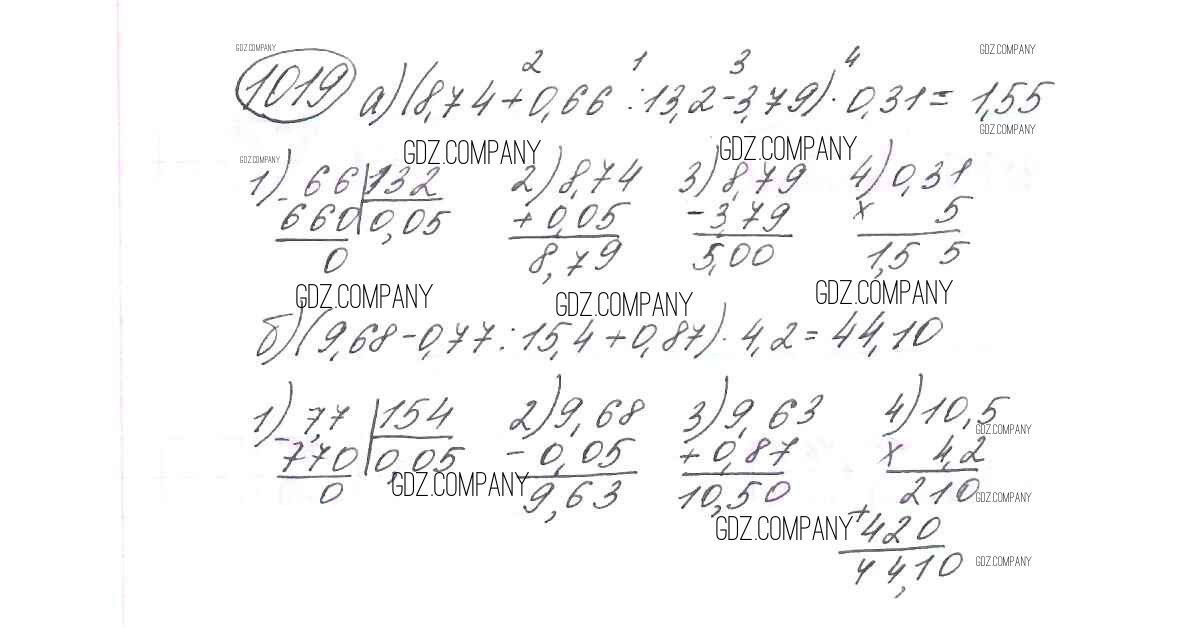 GDZ.COMPANY GDZ.COMPANY
2 1 3 4
1019 а) (8,74 + 0,66 : 13,2 - 3,79) · 0,31 = 1,55
GDZ.COMPANY
GDZ.COMPANY GDZ.COMPANY GDZ.COMPANY
1) - 66 | 132 2) 8,74 3) 8,79 4) 0,31
660 | 0,05 + 0,05 - 3,79 x 5
0 8,79 5,00 1,5 5
GDZ.COMPANY GDZ.COMPANY GDZ.COMPANY
б) (9,68 - 0,77 : 15,4 + 0,87) · 4,2 = 44,10
1) - 7,7 | 154 2) 9,68 3) 9,63 4) 10,5
GDZ.COMPANY
770 | 0,05 - 0,05 + 0,87 x 4,2
GDZ.COMPANY
0 9,63 10,50 210
GDZ.COMPANY
GDZ.COMPANY
+ 420
44,10
GDZ.COMPANY